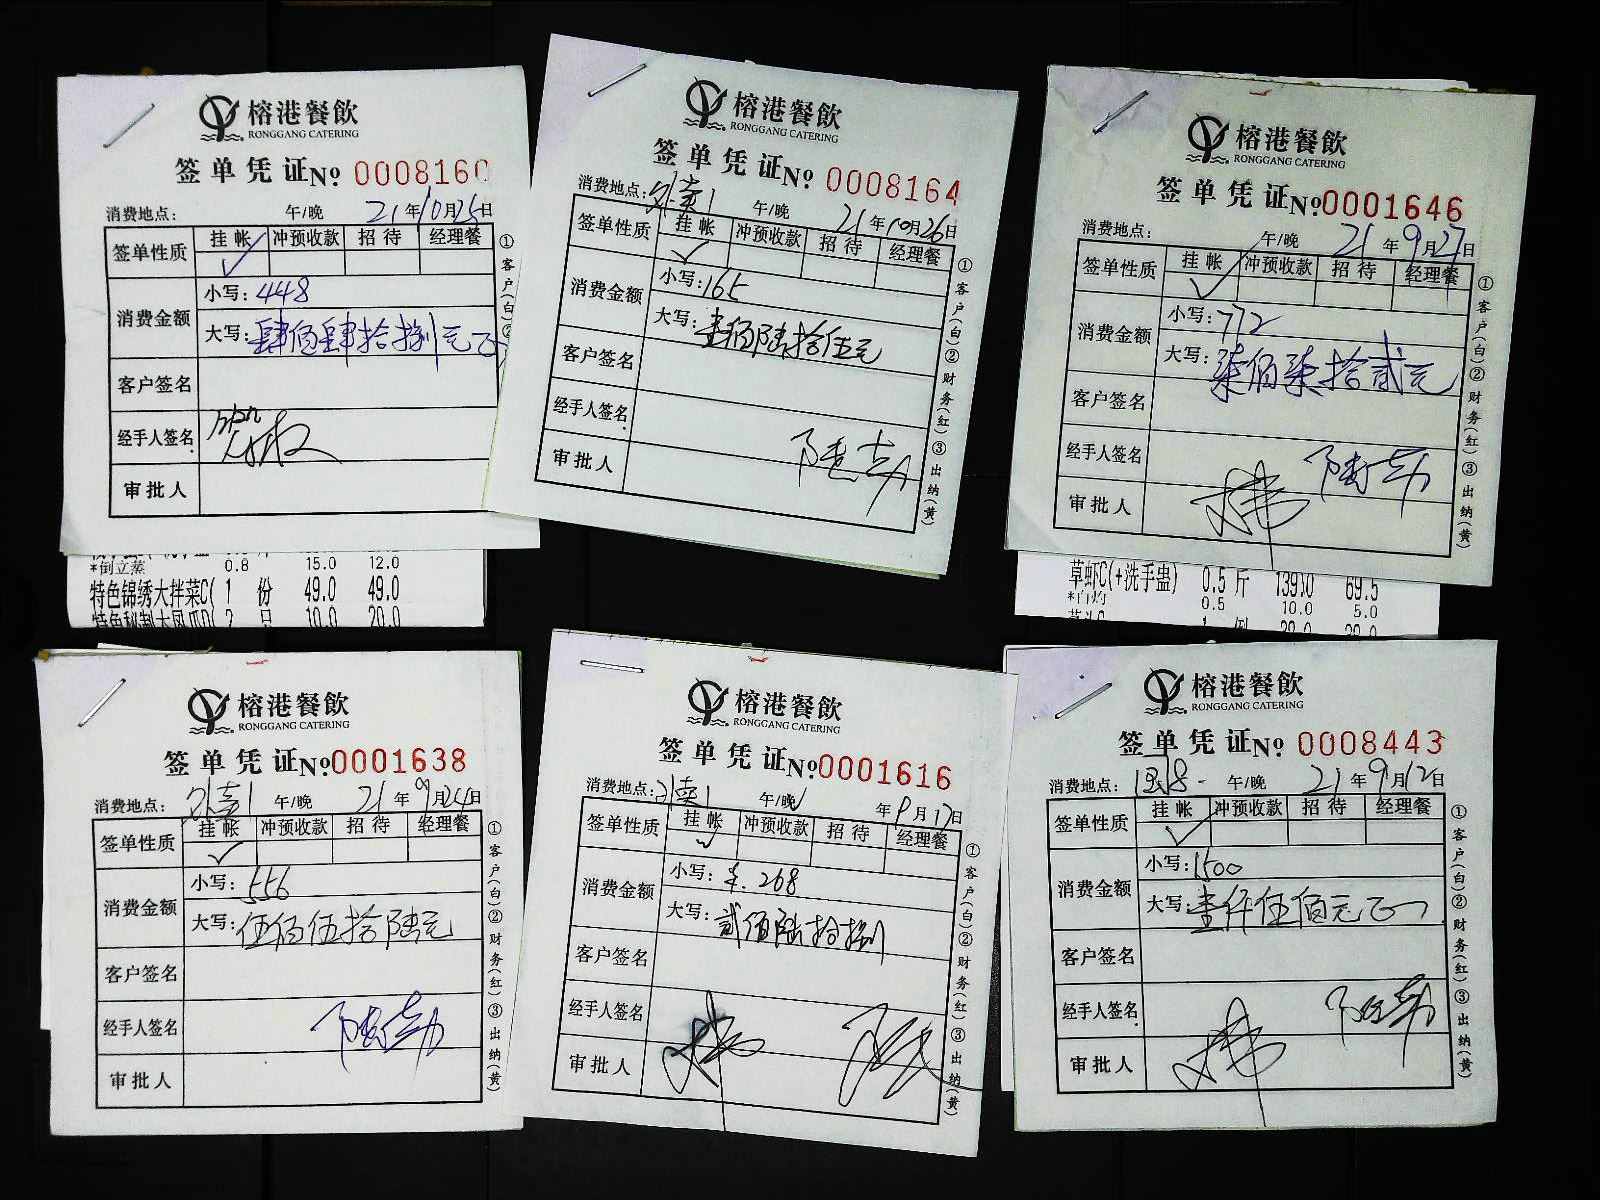 榕港餐飲
RONGGANG CATERING
签单凭证 No 0008160
消费地点: 午/晚 21年10月25日
签单性质 挂帐 冲预收款 招待 经理餐
✓
消费金额 小写: 448
大写: 肆佰肆拾捌元正
客户签名
经手人签名
审批人
①客户(白)②
0.8 斤 15.0 12.0
*倒立蒸 0.8
特色锦绣大拌菜C( 1 份 49.0 49.0
特色秘制大凤爪D( 2 只 10.0 20.0
榕港餐飲
RONGGANG CATERING
签单凭证 No 0008164
消费地点: 外卖1 午/晚 21年10月26日
签单性质 挂帐 冲预收款 招待 经理餐
✓
消费金额 小写: 165
大写: 壹佰陆拾伍元
客户签名
经手人签名
审批人
①客户(白)②财务(红)③出纳(黄)
榕港餐飲
RONGGANG CATERING
签单凭证 No 0001646
消费地点: 午/晚 21年9月27日
签单性质 挂帐 冲预收款 招待 经理餐
✓
消费金额 小写: 772
大写: 柒佰柒拾贰元
客户签名
经手人签名
审批人
①客户(白)②财务(红)③出纳(黄)
草虾C(+洗手盅) 0.5 斤 139.0 69.5
*白灼 0.5 10.0 5.0
榕港餐飲
RONGGANG CATERING
签单凭证 No 0001638
消费地点: 外卖1 午/晚 21年9月24日
签单性质 挂帐 冲预收款 招待 经理餐
✓
消费金额 小写: 556
大写: 伍佰伍拾陆元
客户签名
经手人签名
审批人
①客户(白)②财务(红)③出纳(黄)
榕港餐飲
RONGGANG CATERING
签单凭证 No 0001616
消费地点: 外卖1 午/晚 年9月17日
签单性质 挂帐 冲预收款 招待 经理餐
✓
消费金额 小写: ¥.268
大写: 贰佰陆拾捌
客户签名
经手人签名
审批人
①客户(白)②财务(红)③出纳(黄)
榕港餐飲
RONGGANG CATERING
签单凭证 No 0008443
消费地点: 午/晚 21年9月12日
签单性质 挂帐 冲预收款 招待 经理餐
✓
消费金额 小写: 1500
大写: 壹仟伍佰元正
客户签名
经手人签名
审批人
①客户(白)②财务(红)③出纳(黄)